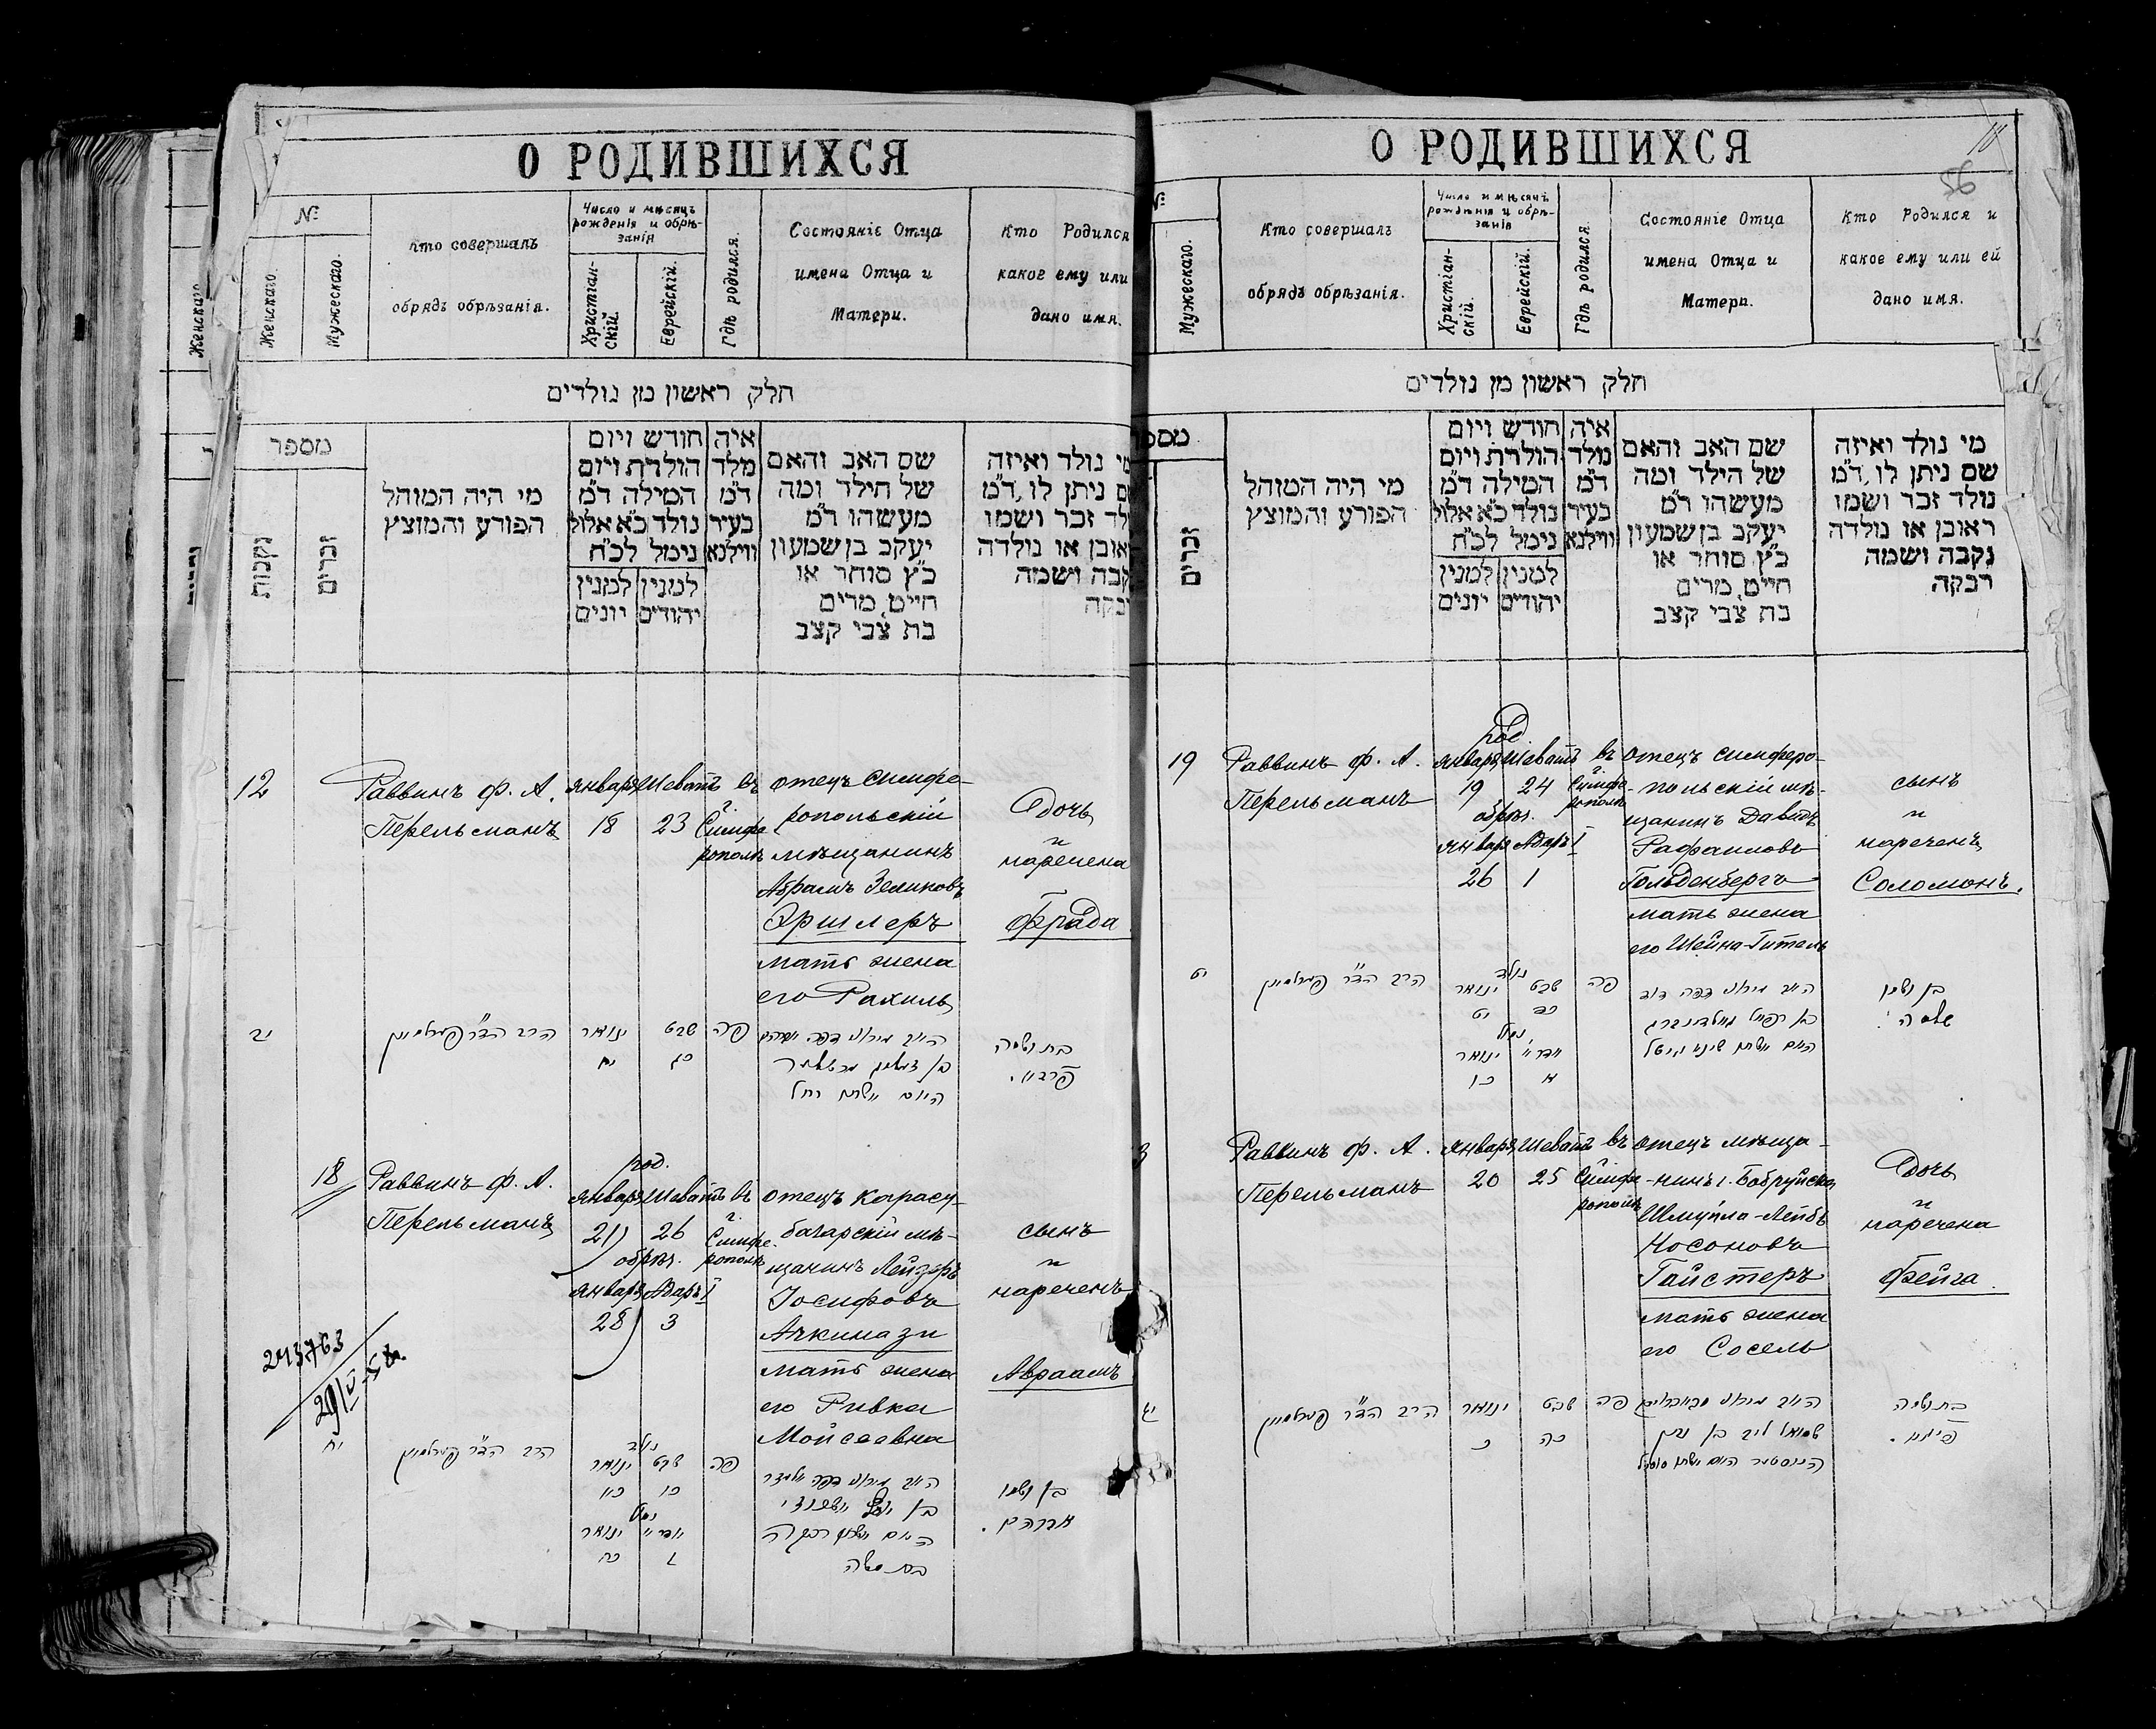 О РОДИВШИХСЯ
№
Женскаго.
Мужескаго.
Кто совершалъ
обрядъ обрѣзанія.
Число и мѣсяцъ
рожденія и обрѣ-
занія
Христіан-
скій.
Еврейскій.
Гдѣ родился.
Состояніе Отца
имена Отца и
Матери.
Кто Родился
какое ему или
дано имя.
חלק ראשון מן נולדים
מספר
נקבות
זכרים
מי היה המוהל
הפורע והמוצץ
חודש ויום
הולדת ויום
המילה ד״מ
נולד כ״א אלול
נימל לכ״ח
למנין
יהודים
למנין
יונים
איה
מלד
ד״מ
בעיר
ווילנא
שם האב והאם
של הילד ומה
מעשהו ד״מ
יעקב בן שמעון
כ״ץ סוחר או
חייט, מרים
בת צבי קצב
מי נולד ואיזה
שם ניתן לו, ד״מ
נולד זכר ושמו
ראובן או נולדה
נקבה ושמה
רבקה
12
Раввинъ Ф. А.
Перельманъ
января
18
Шеватъ
23
въ
г.
Симфе
рополѣ
отецъ Симфе-
ропольскій
мѣщанинъ
Абрамъ Зеликовъ
Эршлеръ
мать жена
его Рахиль
Дочь
и
наречена
Фрада
יב
הרב הד״ר פערלמאן
ינואר
יח
שבט
כג
פה
18
Раввинъ Ф. А.
Перельманъ
род.
января
21
Шеватъ
26
обрѣз.
января
28
Адаръ I
3
въ
г.
Симфе-
рополѣ
отецъ Карасу-
базарскій мѣ-
щанинъ Лейзеръ
Іосифовъ
Ачкинази
мать жена
его Ривка
Мойсеевна
сынъ
и
нареченъ
Авраамъ
243763
יח
הרב הד״ר פערלמאן
נולד
ינואר
שבט
כו
פה
בן ושמו
אברהם.
О РОДИВШИХСЯ
№
Мужескаго.
Кто совершалъ
обрядъ обрѣзанія.
Число и мѣсяцъ
рожденія и обрѣ-
занія
Христіан-
скій.
Еврейскій.
Гдѣ родился.
Состояніе Отца
имена Отца и
Матери.
Кто Родился и
какое ему или ей
дано имя.
חלק ראשון מן נולדים
זכרים
מי היה המוהל
הפורע והמוצץ
חודש ויום
הולדת ויום
המילה ד״מ
נולד כ״א אלול
נימל לכ״ח
למנין
יהודים
למנין
יונים
איה
מלד
ד״מ
בעיר
ווילנא
שם האב והאם
של הילד ומה
מעשהו ד״מ
יעקב בן שמעון
כ״ץ סוחר או
חייט, מרים
בת צבי קצב
מי נולד ואיזה
שם ניתן לו, ד״מ
נולד זכר ושמו
ראובן או נולדה
נקבה ושמה
רבקה
19
Раввинъ Ф. А.
Перельманъ
род.
января
19
Шеватъ
24
обрѣз.
января
26
Адаръ I
1
въ
г.
Симфе-
рополѣ
отецъ симферо-
польскій мѣ-
щанинъ Давидъ
Рафаиловъ
Гольденбергъ
мать жена
его Шейна-Гитель
сынъ
и
нареченъ
Соломонъ.
יט
הרב הד״ר פערלמאן
נולד
ינואר
יט
שבט
כד
פה
בן ושמו
שלמה.
3
Раввинъ Ф. А.
Перельманъ
января
20
Шеватъ
25
въ
г.
Симфе
рополѣ
отецъ мѣща-
нинъ г. Бобруйска
Шмуйла-Лейбъ
Носоновъ
Гайстеръ
мать жена
его Сосель
Дочь
и
наречена
Фейга.
הרב הד״ר פערלמאן
ינואר
כ
שבט
כה
פה
בת ושמה